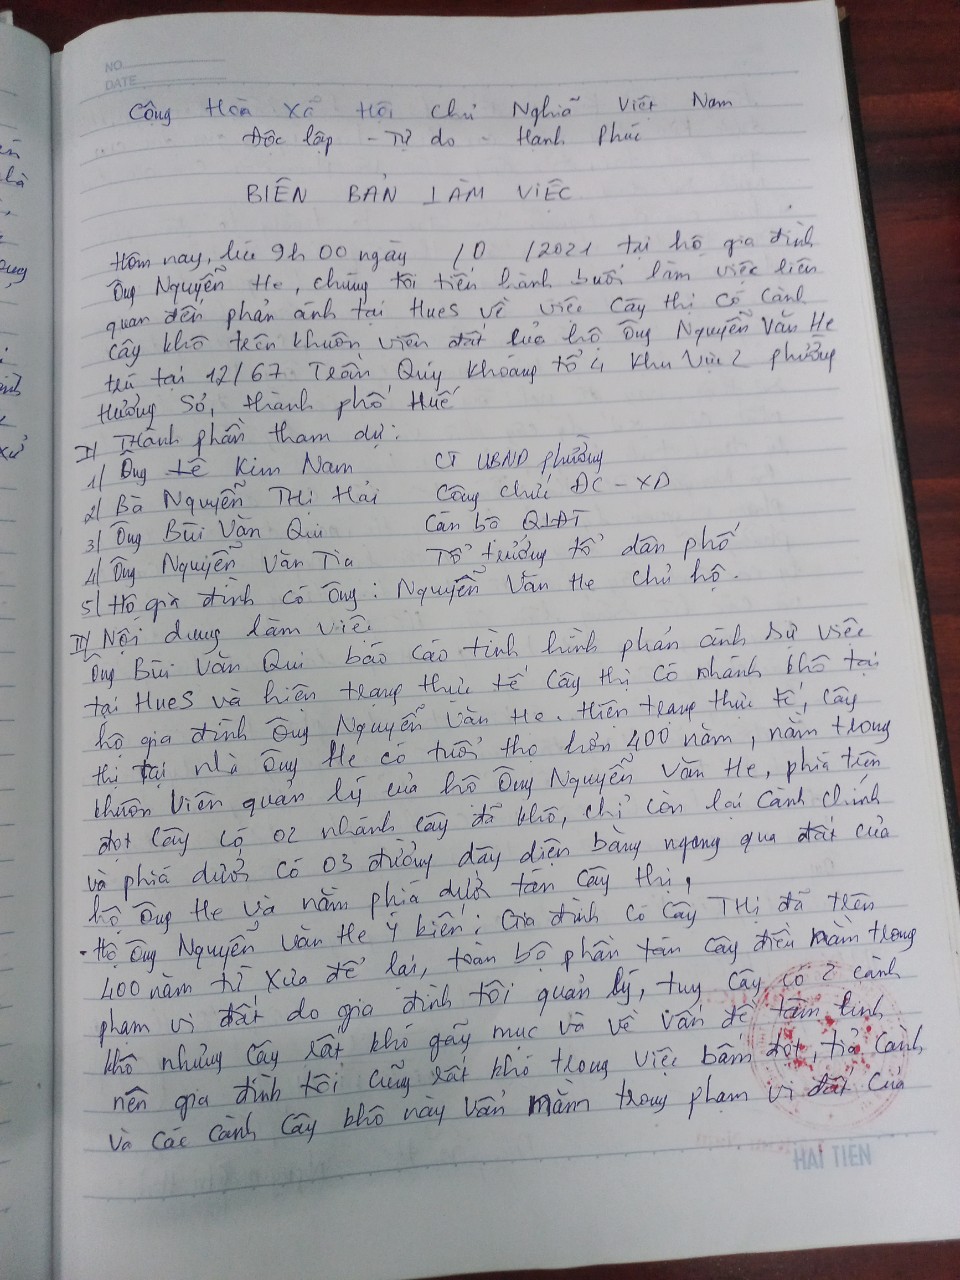 NO
DATE
Cộng Hoà Xã Hội Chủ Nghĩa Việt Nam
Độc lập - Tự do - Hạnh Phúc
BIÊN BẢN LÀM VIỆC
Hôm nay, lúc 9h 00 ngày /10 /2021 tại hộ gia đình
Ông Nguyễn He, chúng tôi tiến hành buổi làm việc liên
quan đến phản ánh tại HueS về việc Cây thị có cành
cây khô trên khuôn viên đất của hộ Ông Nguyễn Văn He
trú tại 12/67 Trần Quý Khoáng tổ 4 khu vực 2 phường
Hương Sơ, thành phố Huế
I/ Thành phần tham dự:
1/ Ông Lê Kim Nam CT UBND phường
2/ Bà Nguyễn Thị Hải Công chức ĐC - XD
3/ Ông Bùi Văn Qui Cán bộ QLĐT
4/ Ông Nguyễn Văn Tìa Tổ trưởng tổ dân phố
5/ Hộ gia đình có ông: Nguyễn Văn He chủ hộ.
II/ Nội dung làm việc
Ông Bùi Văn Qui báo cáo tình hình phản ánh sự việc
tại HueS và hiện trạng thực tế cây thị có nhánh khô tại
hộ gia đình Ông Nguyễn Văn He. Hiện trạng thực tế, cây
thị tại nhà Ông He có tuổi thọ hơn 400 năm, nằm trong
khuôn viên quản lý của hộ Ông Nguyễn Văn He, phía trên
đọt cây có 02 nhánh cây đã khô, chỉ còn lại cành chính
và phía dưới có 03 đường dây điện băng ngang qua đất của
hộ Ông He và nằm phía dưới tán cây thị,
- Hộ Ông Nguyễn Văn He ý kiến: Gia đình có cây THị đã trên
400 năm từ xưa để lại, toàn bộ phần tán cây đều nằm trong
phạm vi đất do gia đình tôi quản lý, tuy cây có 2 cành
khô nhưng cây rất khó gãy mục và về vấn đề tâm linh
nên gia đình tôi cũng rất khó trong việc bấm đọt, trả cành
và các cành cây khô này vẫn nằm trong phạm vi đất của
HAI TIEN